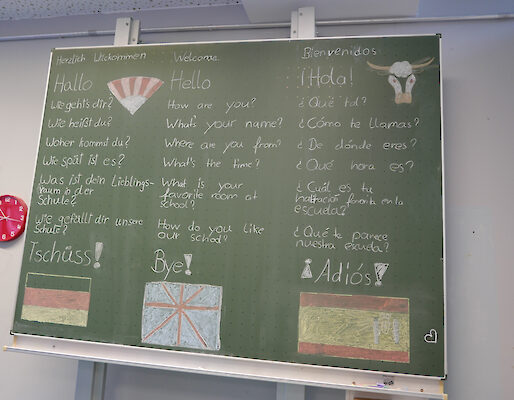 Herzlich Willkommen
Hallo
Wie geht's dir?
Wie heißt du?
Woher kommst du?
Wie spät ist es?
Was ist dein Lieblings-
raum in der
Schule?
Wie gefällt dir unsere
Schule?
Tschüss!
Welcome
Hello
How are you?
What's your name?
Where are you from?
What's the time?
What is your
favorite room at
school?
How do you like
our school?
Bye!
Bienvenidos
¡Hola!
¿Qué tal?
¿Cómo te llamas?
¿De dónde eres?
¿Qué hora es?
¿Cuál es tu
habitación favorita en la
escuela?
¿Qué te parece
nuestra escuela?
¡Adiós!